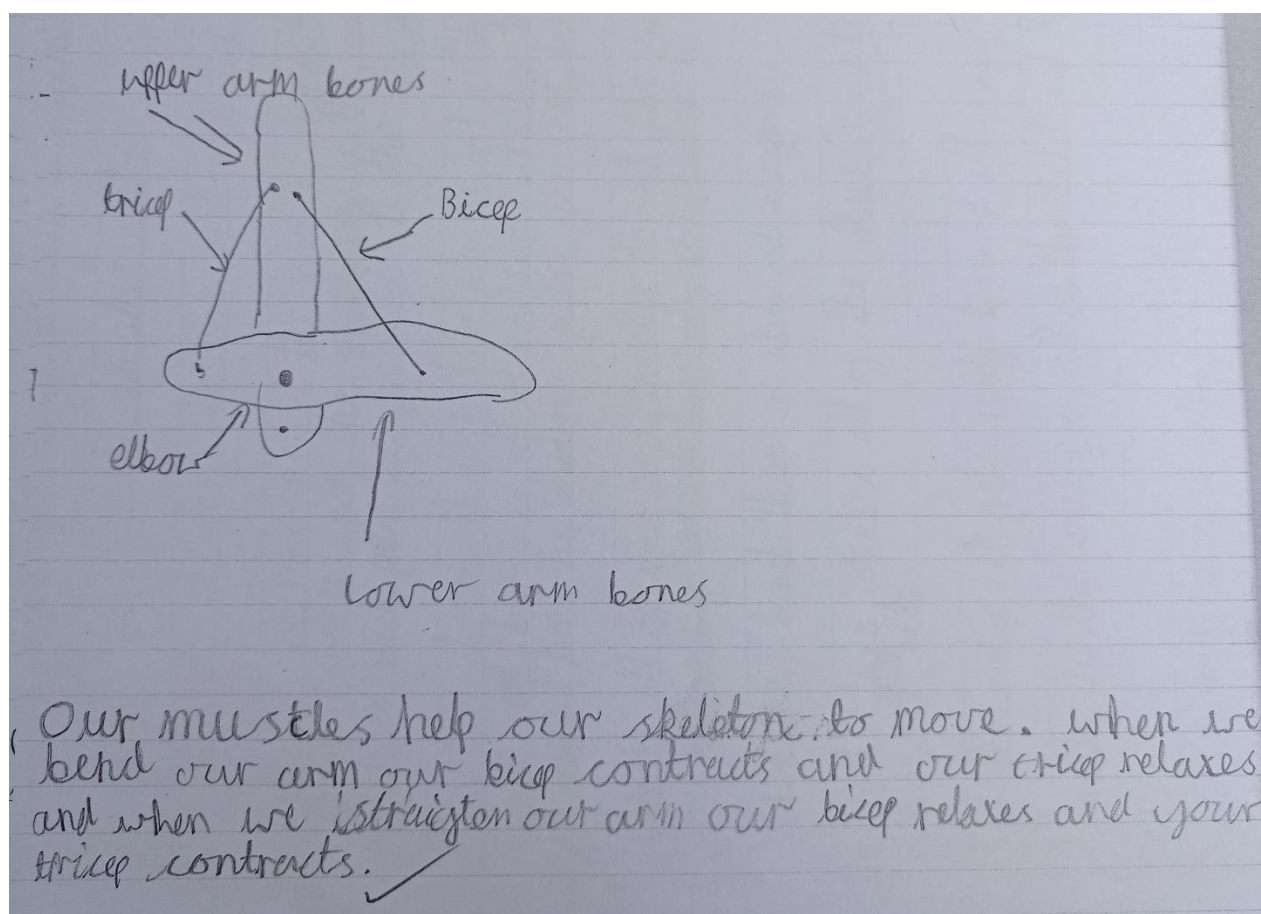 upper arm bones
tricep
Bicep
elbow
lower arm bones
Our mustles help our skeleton to move. when we
bend our arm our bicep contracts and our tricep relaxes
and when we straigten our arm our bicep relaxes and your
tricep contracts.